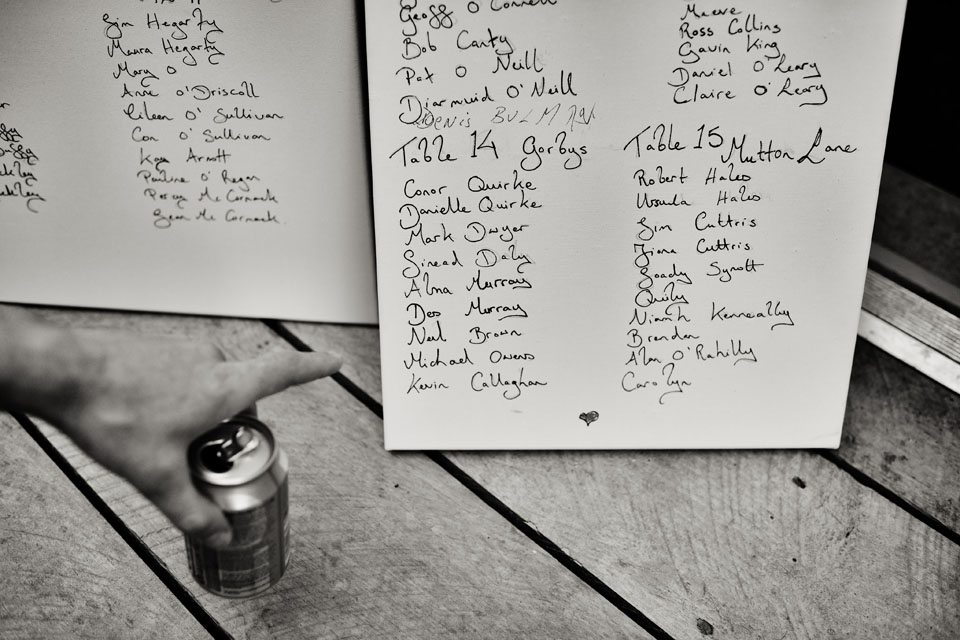 Jim Hegarty
Maura Hegarty
Mary O
Anne O'Driscoll
Eileen O' Sullivan
Con O' Sullivan
Kay Arnott
Pauline O' Regan
Percy Mc Cormack
Sean Mc Cormack
Geoff O'Connell
Bob Canty
Pat O Neill
Diarmuid O'Neill
Denis BULMAN
Table 14 Gorbys
Conor Quirke
Danielle Quirke
Mark Dwyer
Sinead Daly
Alma Murray
Des Murray
Neil Brown
Michael Owens
Kevin Callaghan
Maeve
Ross Collins
Gavin King
Daniel O'Leary
Claire O'Leary
Table 15 Mutton Lane
Robert Hales
Ursula Hales
Jim Cuttris
Fiona Cuttris
Synott
Niamh Kenneally
Brendan
Alan O'Rahilly
Carolyn